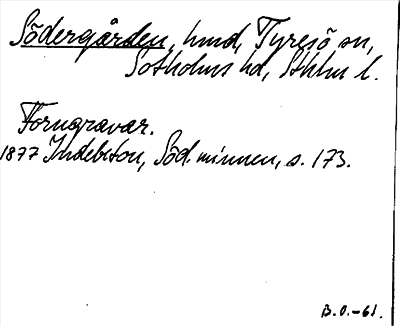 Södergården, hmd, Tyresö sn,
Sotholms hd, Sthlm l.
Forngravar.
1877 Indebetou, Söd. minnen, s. 173.
B.O.-61.